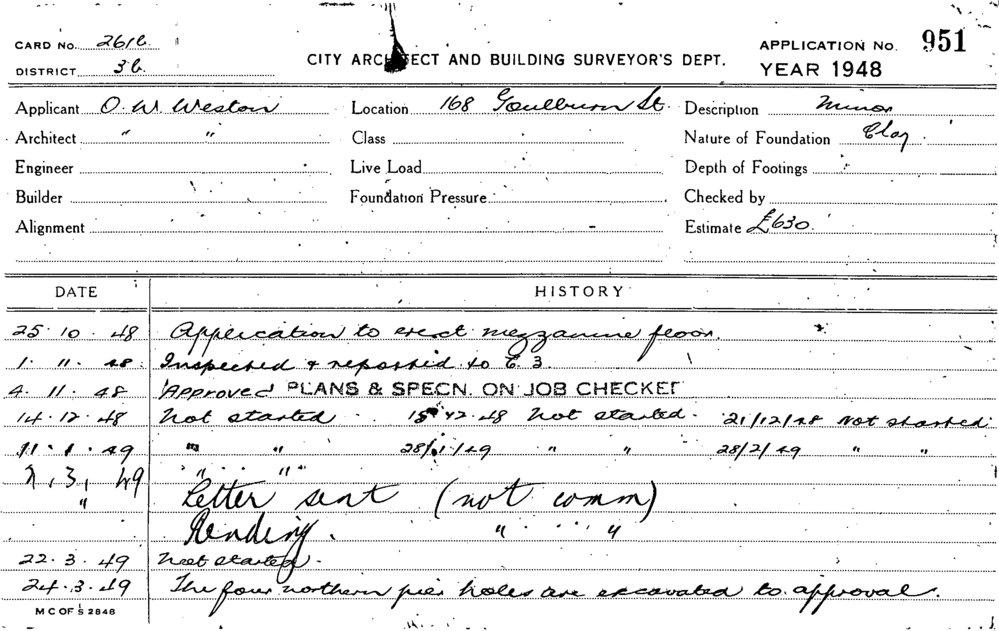 CARD No. 261B.
DISTRICT 3b.
CITY ARCHITECT AND BUILDING SURVEYOR'S DEPT.
APPLICATION No. 951
YEAR 1948
Applicant O. W. Weston Location 168 Goulburn St. Description Minor
Architect " " Class Nature of Foundation Clay
Engineer Live Load Depth of Footings
Builder Foundation Pressure Checked by
Alignment Estimate £630.
DATE HISTORY
25. 10. 48 Application to erect mezzanine floor.
1. 11. 48. Inspected & reported to C. 3.
4. 11. 48 Approved PLANS & SPECN. ON JOB CHECKED
14. 12. 48 Not started. 12. 48 Not started. 21/12/48 Not started.
11. 1. 49 " " 28/1/49 " " 28/2/49 " "
3, 49 " "
" Letter sent (not comm)
Pending. " "
22. 3. 49 Not started.
24. 3. 49 The four northern pier holes are excavated to approval.
M C OF S 2848